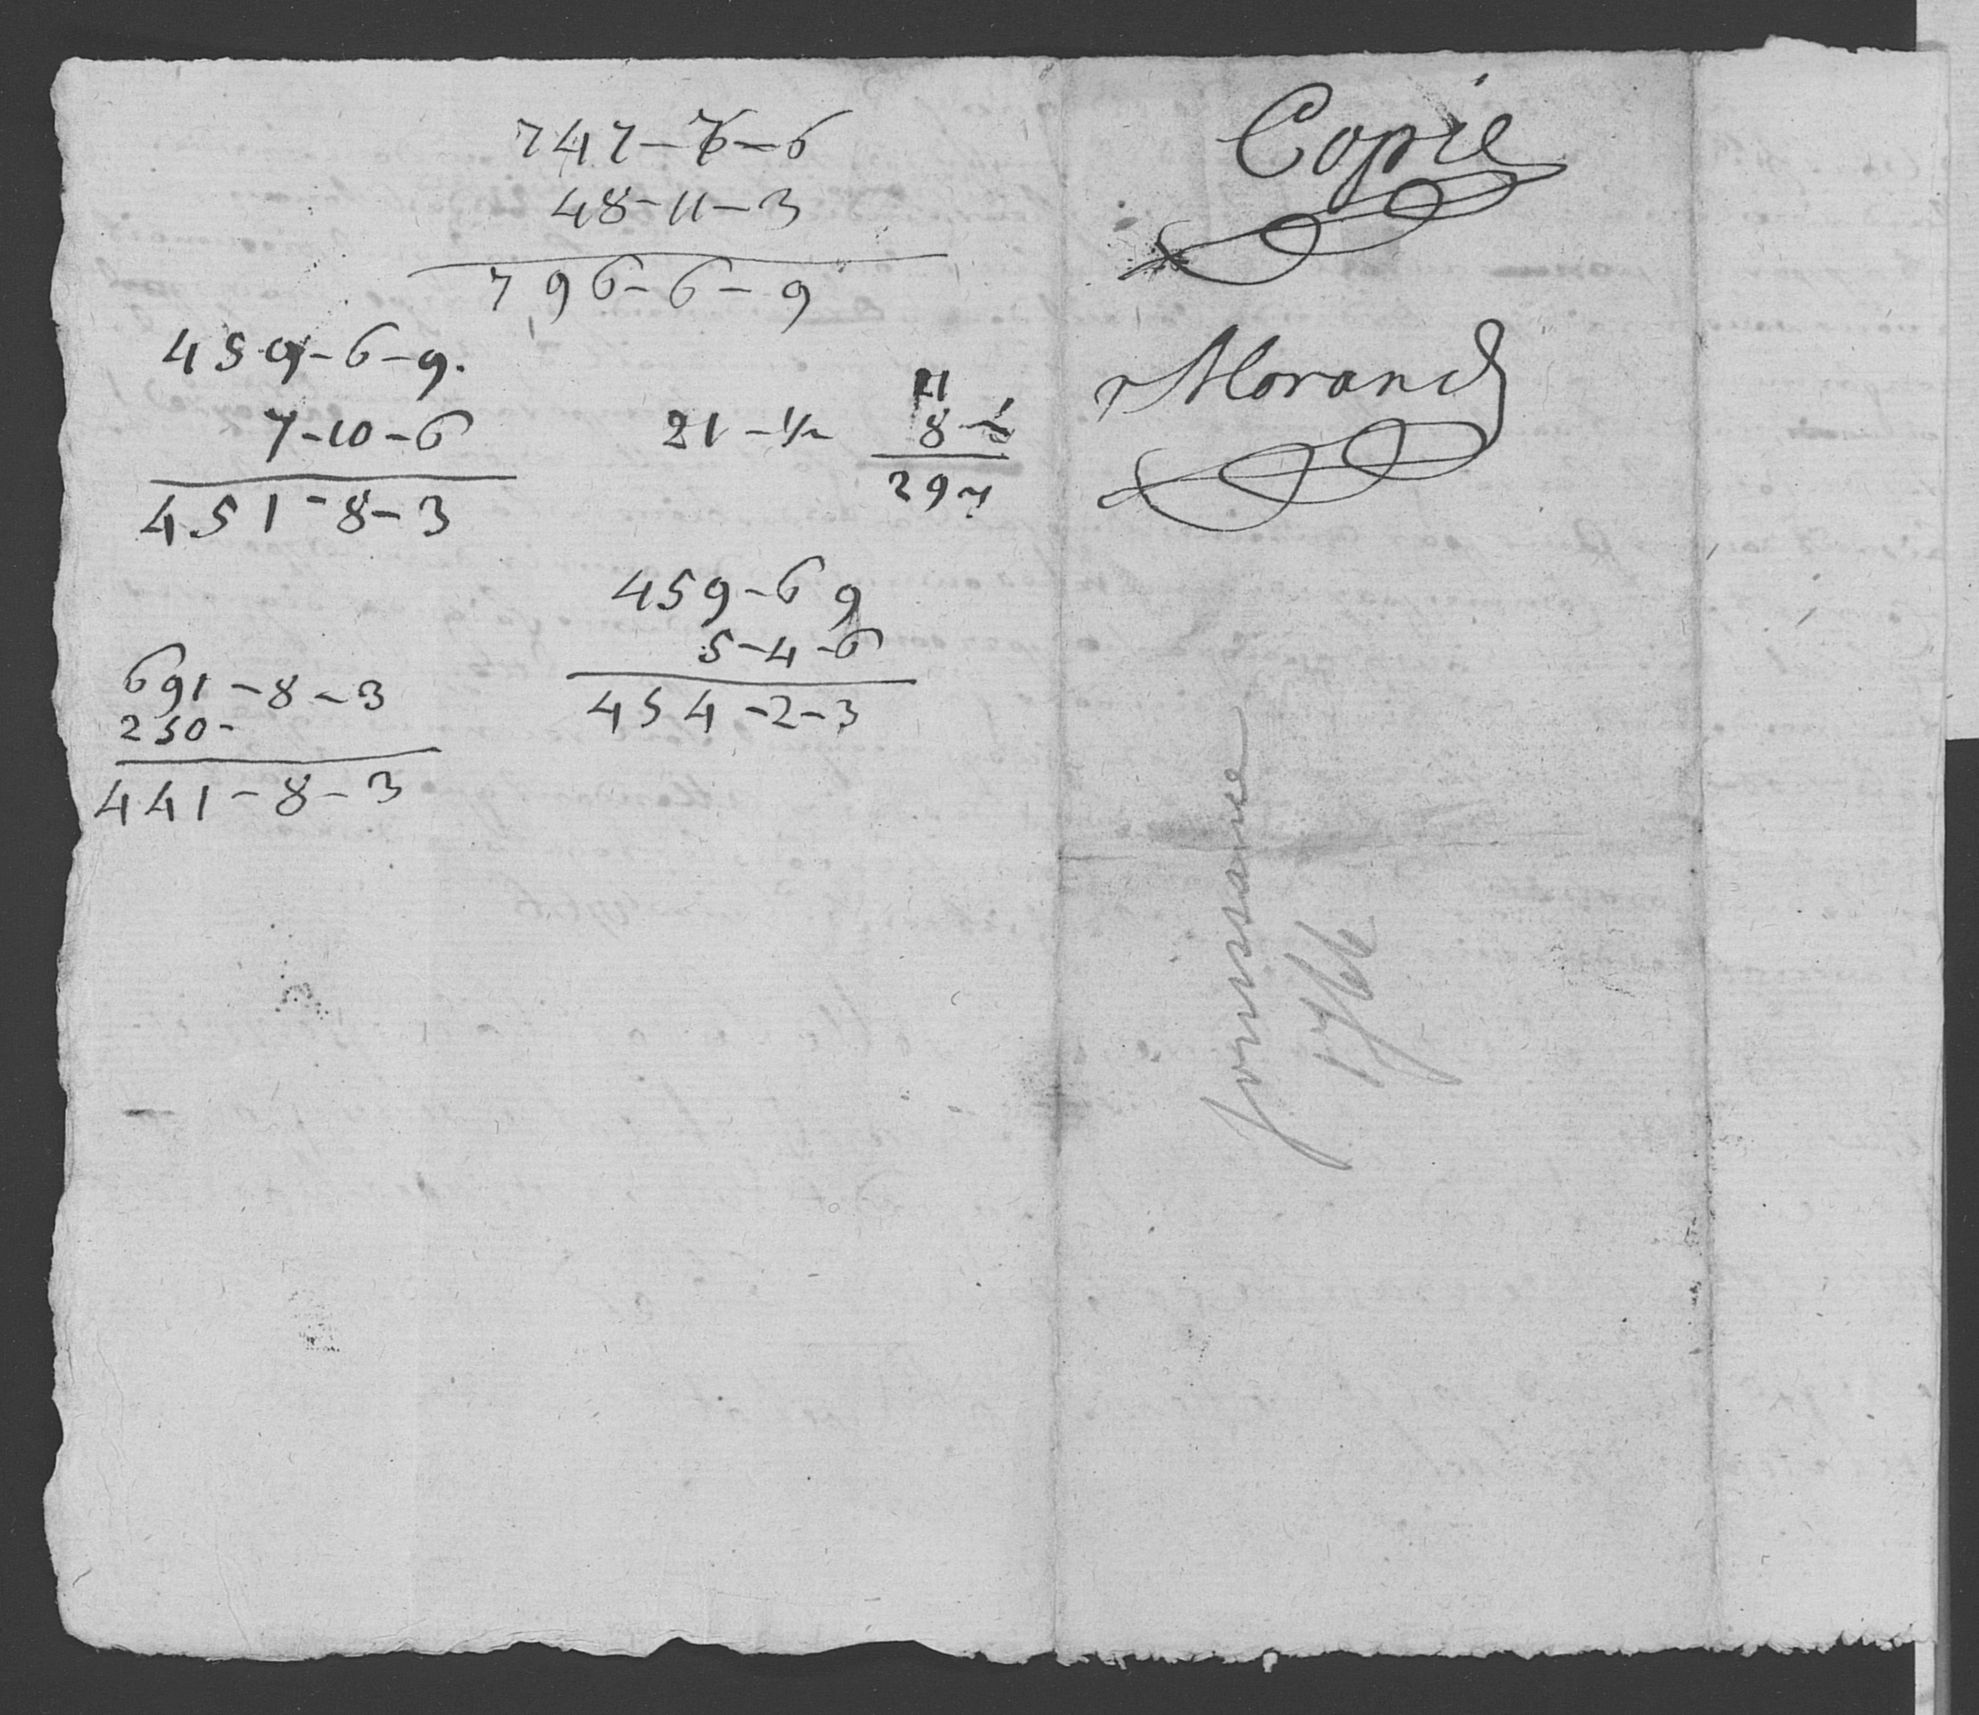 747-7-6
48-11-3
796-6-9
459-6-9.
7-10-6
451-8-3
21-½
21
8-½
29
459-6 9
5-4-6
454-2-3
691-8-3
250-
441-8-3
Copie
Morand
jouissance
1766